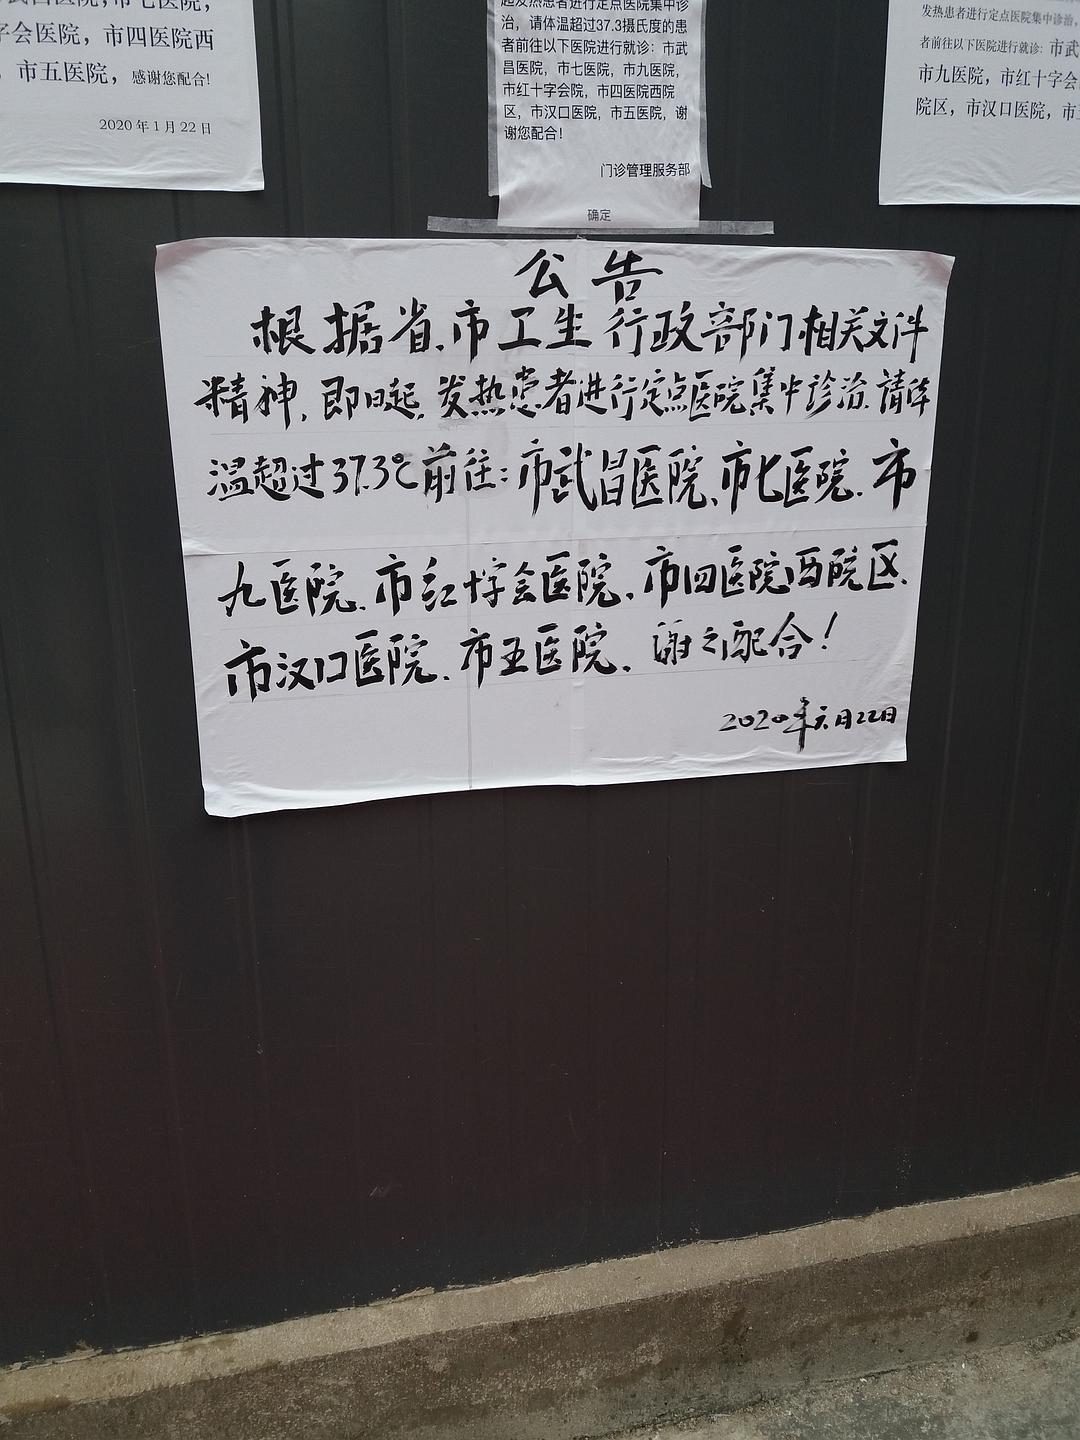 市七医院，
字会医院，市四医院西
，市五医院，感谢您配合！
2020年1月22日
起发热患者进行定点医院集中诊
治，请体温超过37.3摄氏度的患
者前往以下医院进行就诊：市武
昌医院，市七医院，市九医院，
市红十字会院，市四医院西院
区，市汉口医院，市五医院，谢
谢您配合！
门诊管理服务部
确定
发热患者进行定点医院集中诊治，
者前往以下医院进行就诊：市武
市九医院，市红十字会
院区，市汉口医院，市
公告
根据省、市工生行政部门相关文件
精神，即日起，发热患者进行定点医院集中诊治，请体
温超过37.3℃前往：市武昌医院、市七医院、市
九医院、市红十字会医院、市四医院西院区、
市汉口医院、市五医院。谢之配合！
2020年元月22日